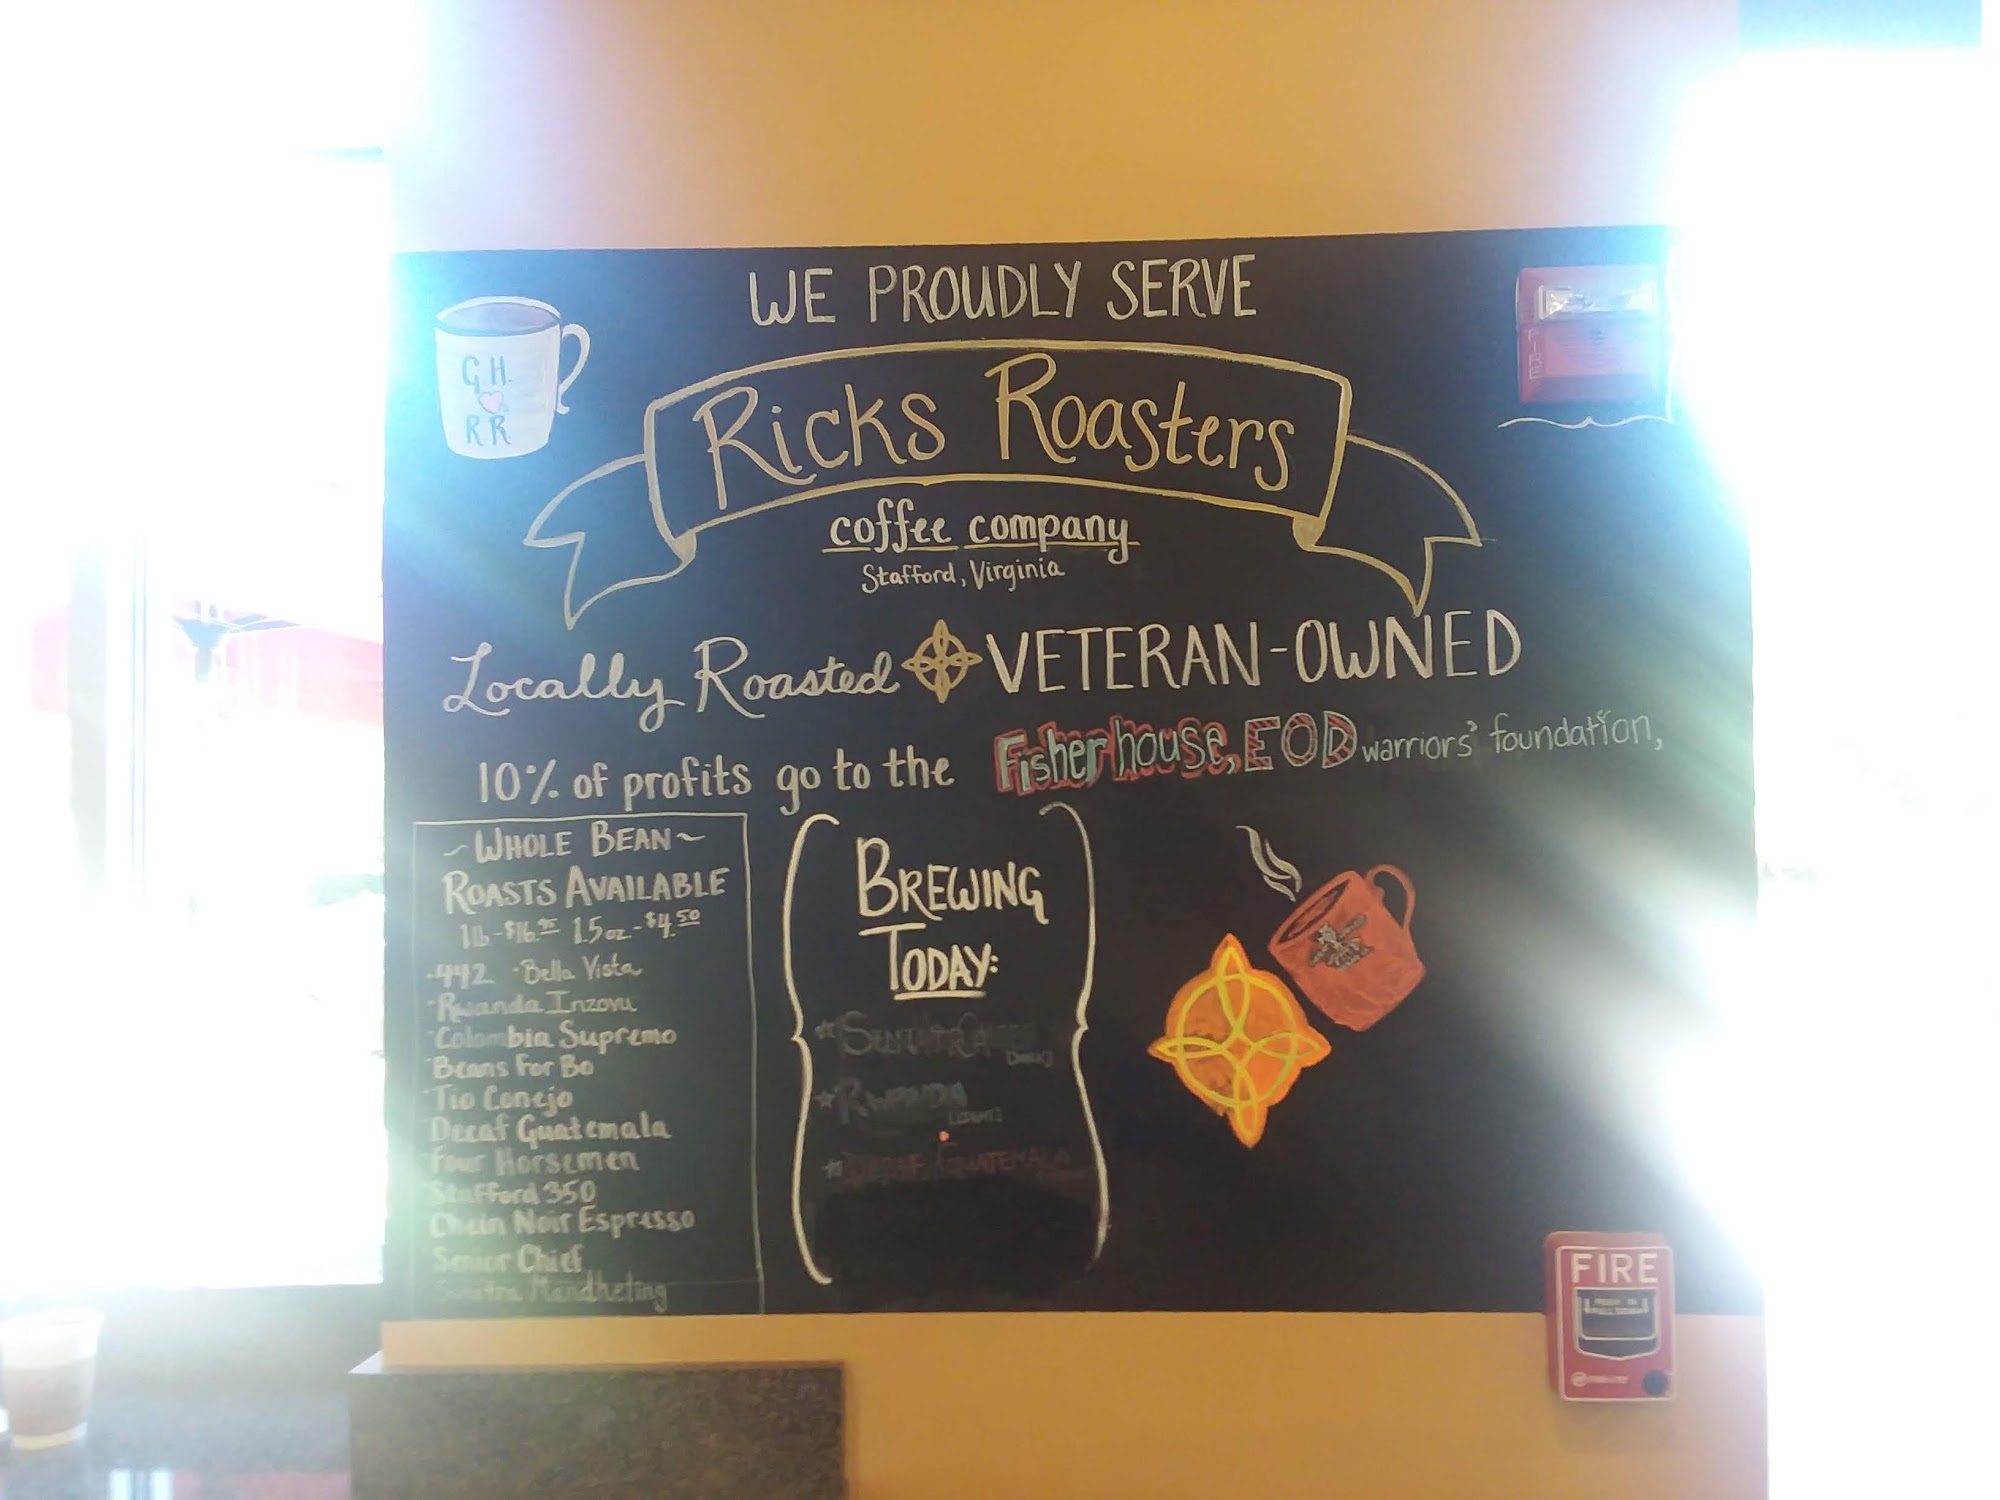 WE PROUDLY SERVE
G.H.
RR
RICKS ROASTERS
coffee company
Stafford, Virginia
Locally Roasted VETERAN-OWNED
10% of profits go to the Fisher house, EOD warriors' foundation,
~WHOLE BEAN~
ROASTS AVAILABLE
1lb-$16.95 1.5oz-$4.50
·442 ·Bella Vista
·Rwanda Inzovu
·Colombia Supremo
·Beans For Bo
·Tio Conejo
·Decaf Guatemala
·Four Horsemen
·Stafford 350
·Chein Noir Espresso
·Senior Chief
Mandheling
BREWING
TODAY:
RWANDA
DECAF GUATEMALA
FIRE
FIRE
PUSH IN
PULL DOWN